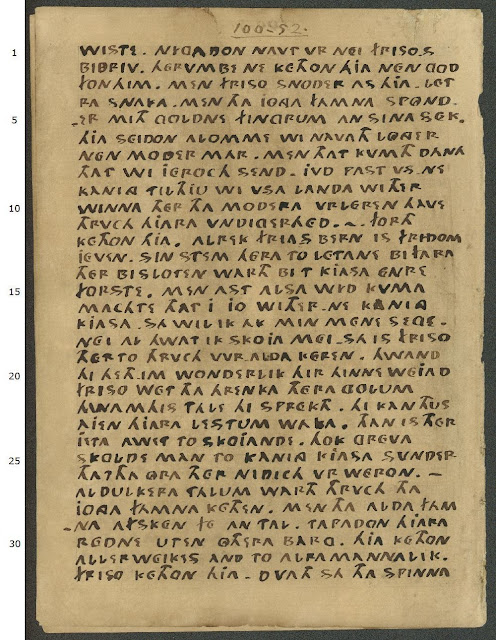 100-52.
1 WISTE . NYGADON NAVT VR NEI FRISO.S
BIDRIV . HERVMBE NE KETHON HIA NEN GOD
FON HIM . MEN FRISO SNODER AS HIA . LET
RA SNAKA . MEN THA IOGA FAMNA SPOND-
5 -ER MITH GOLDNE FINGRUM AN SINA SEK.
HIA SEIDON ALOMME WI NAVATH LONGER
NEN MODER MAR . MEN THAT KVMTH DANA
THAT WI IEROCH SEND . IVD PAST VS NE
KANIG TILTHIU WI VSA LANDA WITHER
10 WINNA THER THA MODERA VRLEREN HAVE
THRVCH HIARA VNDIGERHED . ~ . FORTH
KETHON HIA . ALREK FRIAS BERN IS FRIDOM
IEVEN . SIN STEM HERA TO LETANE BIFARA
THER BISLOTEN WARTH BIT KIASA ENRE
15 FORSTE . MEN AST ALSA WYD KVMA
MACHTE THAT I IO WITHER NE KANIG
KIASA . SA WIL IK AK MIN MENE SEGE.
NEI AL HWAT IK SKOIA MEI . SA IS FRISO
THERTO THRVCH WR.ALDA KEREN . HWAND
20 HI HETH IM WONDERLIK HIR HINNE WEIAD
FRISO WET THA HRENKA THERA GOLUM
HWAM HIS TALE HI SPREKTH . HI KAN THUS
AIEN HIARA LESTUM WAKA . THAN IS THER
IETA AWET TO SKOIANDE . HOK GREVA
25 SKOLDE MAN TO KANIG KIASA SUNDER
THAT THA ORA THER NIDICH VR WERON . ~
ALDULKERA TALUM WARTH THRVCH THA
IOGA FAMNA KETHEN . MEN THA ALDA FAM
-NA AFSKEN FE AN TAL . TAPADON HIARA
30 REDNE UTEN OTHERA BARG . HIA KETHON
ALLERWEIKES AND TO ALRA MANNALIK.
FRISO KETHON HIA . DVATH SA THA SPINNA